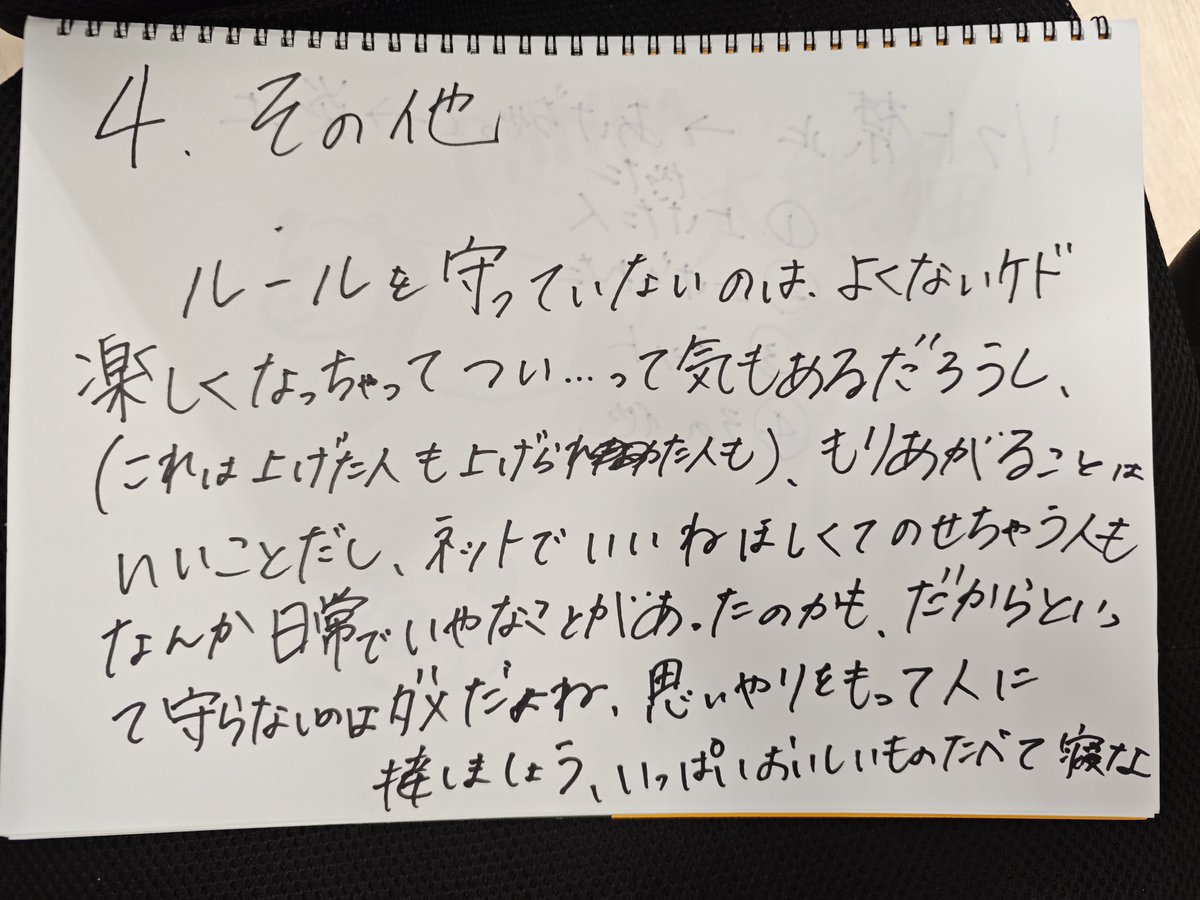 4. その他
ルールを守っていないのは、よくないケド
楽しくなっちゃってつい…って気もあるだろうし、
(これは上げた人も上げられた人も)、もりあがることは
いいことだし、ネットでいいねほしくてのせちゃう人も
なんか日常でいやなことがあったのかも、だからといっ
て守らないのはダメだよね、思いやりをもって人に
接しましょう、いっぱいおいしいものたべて寝な